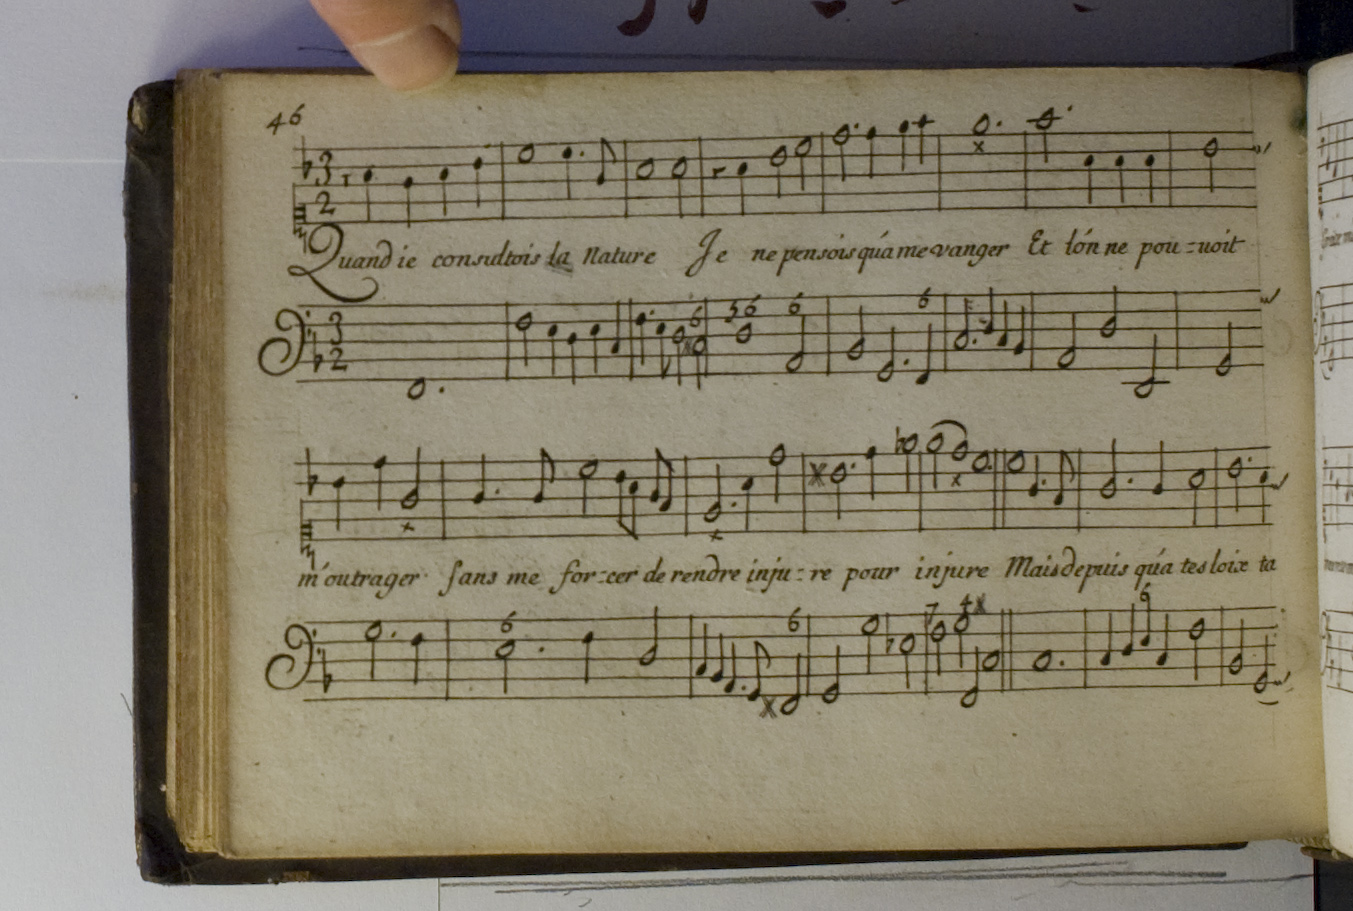 46
3
2
Quand ie consultois la Nature Je ne pensois qu'a me vanger Et lón ne pou-uoit
3
2
6 5 6 6 6
m'outrager sans me for-cer de rendre inju-re pour injure Mais depuis qu'a tes loix ta
6 6 7 4 6